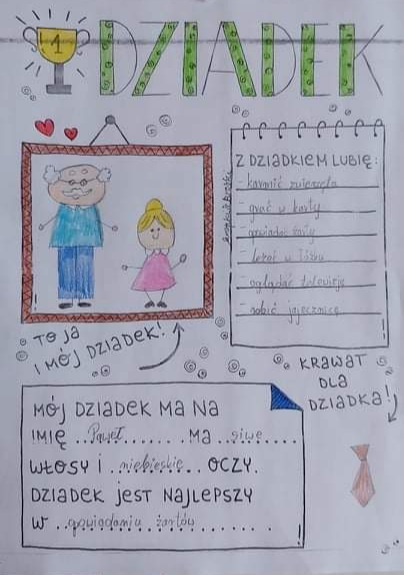 1 DZIADEK
Z DZIADKIEM LUBIĘ:
- karmić zwierzęta
- grać w karty
- opowiadać żarty
- leżeć w łóżku
- oglądać telewizję
- robić jajecznicę
TO JA
I MÓJ DZIADEK!
KRAWAT
DLA
DZIADKA!
MÓJ DZIADEK MA NA
IMIĘ ..Paweł....... MA ..siwe....
WŁOSY I ..niebieskie.. OCZY.
DZIADEK JEST NAJLEPSZY
W ..opowiadaniu żartów......